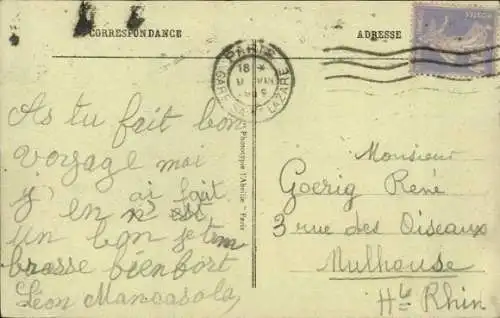 CORRESPONDANCE
ADRESSE
PARIS
GARE St LAZARE
18
As tu fait bon
voyage moi
j'en ai fait
un bon je tem
brasse bien fort
Léon
Phototypie l'Abeille - Paris
Monsieur
Goerig René
3 rue des Oiseaux
Mulhouse
Ht Rhin